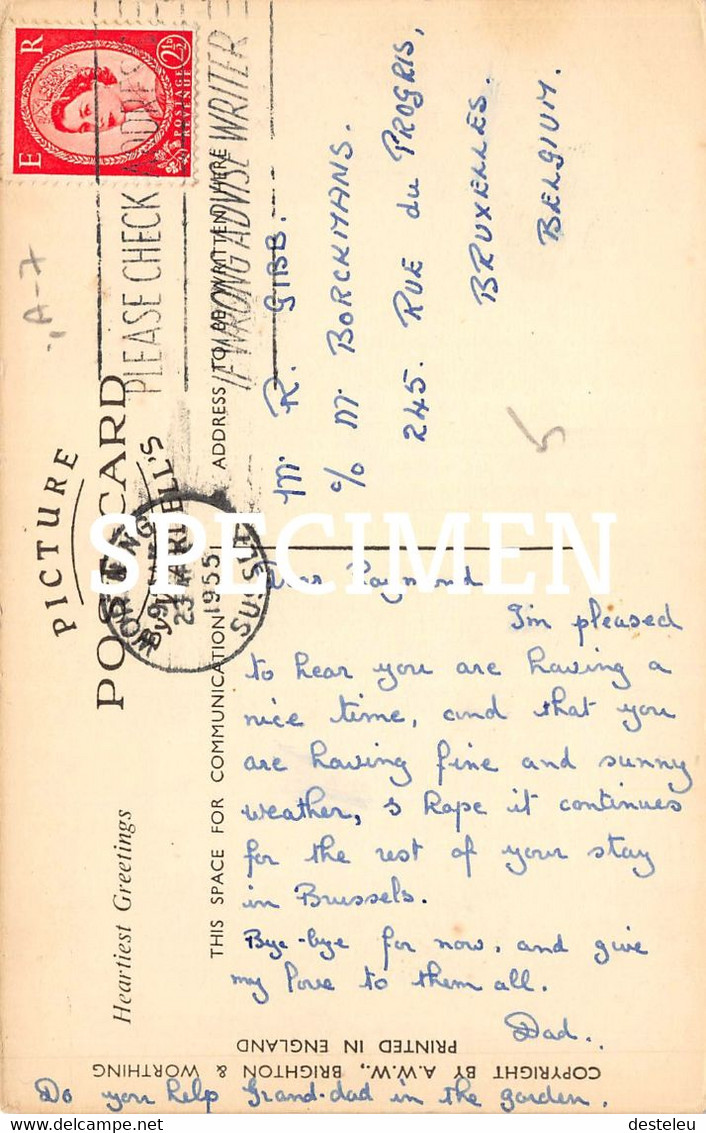 E R
2½D
POSTAGE
REVENUE
PLEASE CHECK ADDRESS
IF WRONG ADVISE WRITER
A-7
PICTURE
POST CARD
By
WARDELL'S
WORTHING
23
1955
SUSSEX
Heartiest Greetings
THIS SPACE FOR COMMUNICATION
ADDRESS TO BE WRITTEN HERE
Mr R. GIBB.
c/o Mr BORCKMANS.
245. RUE du PROGRIS,
BRUXELLES.
BELGIUM.
5
Dear Raymond
I'm pleased
to hear you are having a
nice time, and that you
are having fine and sunny
weather, I hope it continues
for the rest of your stay
in Brussels.
Bye-bye for now, and give
my love to them all.
Dad..
COPYRIGHT BY A.W.W., BRIGHTON & WORTHING
PRINTED IN ENGLAND
Do you help Grand-dad in the garden.
SPECIMEN
delcampe.net
desteleu